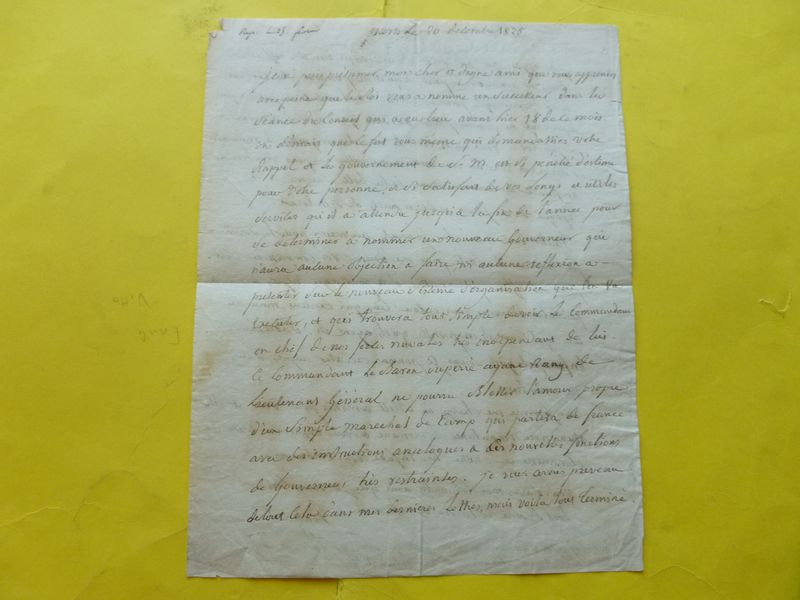 Paris le 20 decembre 1825
je ne puis présumer mon cher et digne ami que vous apprenies
avec peine que le Roi vous a nommé un successeur dans la
séance du Conseil qui a eu lieu avant hier 18 de ce mois
vous même qui demandassiés votre
Rappel et le gouvernement de S. M. est si penetré d'estime
pour votre personne, et si satisfait de vos longs et utiles
services qu'il a attendu jusqu'à la fin de l'année pour
se determiner à nommer un nouveau Gouverneur qui
n'aura aucune objection à faire ni aucune reflexion a
présenter sur le nouveau Sistême d'organisation que l'on va
executer, et qui trouvera tout simple de voir le Commandant
en chef de nos forces navales indépendant de lui.
le Commandant le Baron ayant rang de
Lieutenant Général ne pourra Blesser l'amour propre
d'un Simple marechal de Camp qui partira de france
avec des instructions analogues à des nouvelles fonctions
de Gouverneur très restraintes. je vous avois prevenu
de tout cela dans mes dernieres Lettres, mais voilà tout terminé.